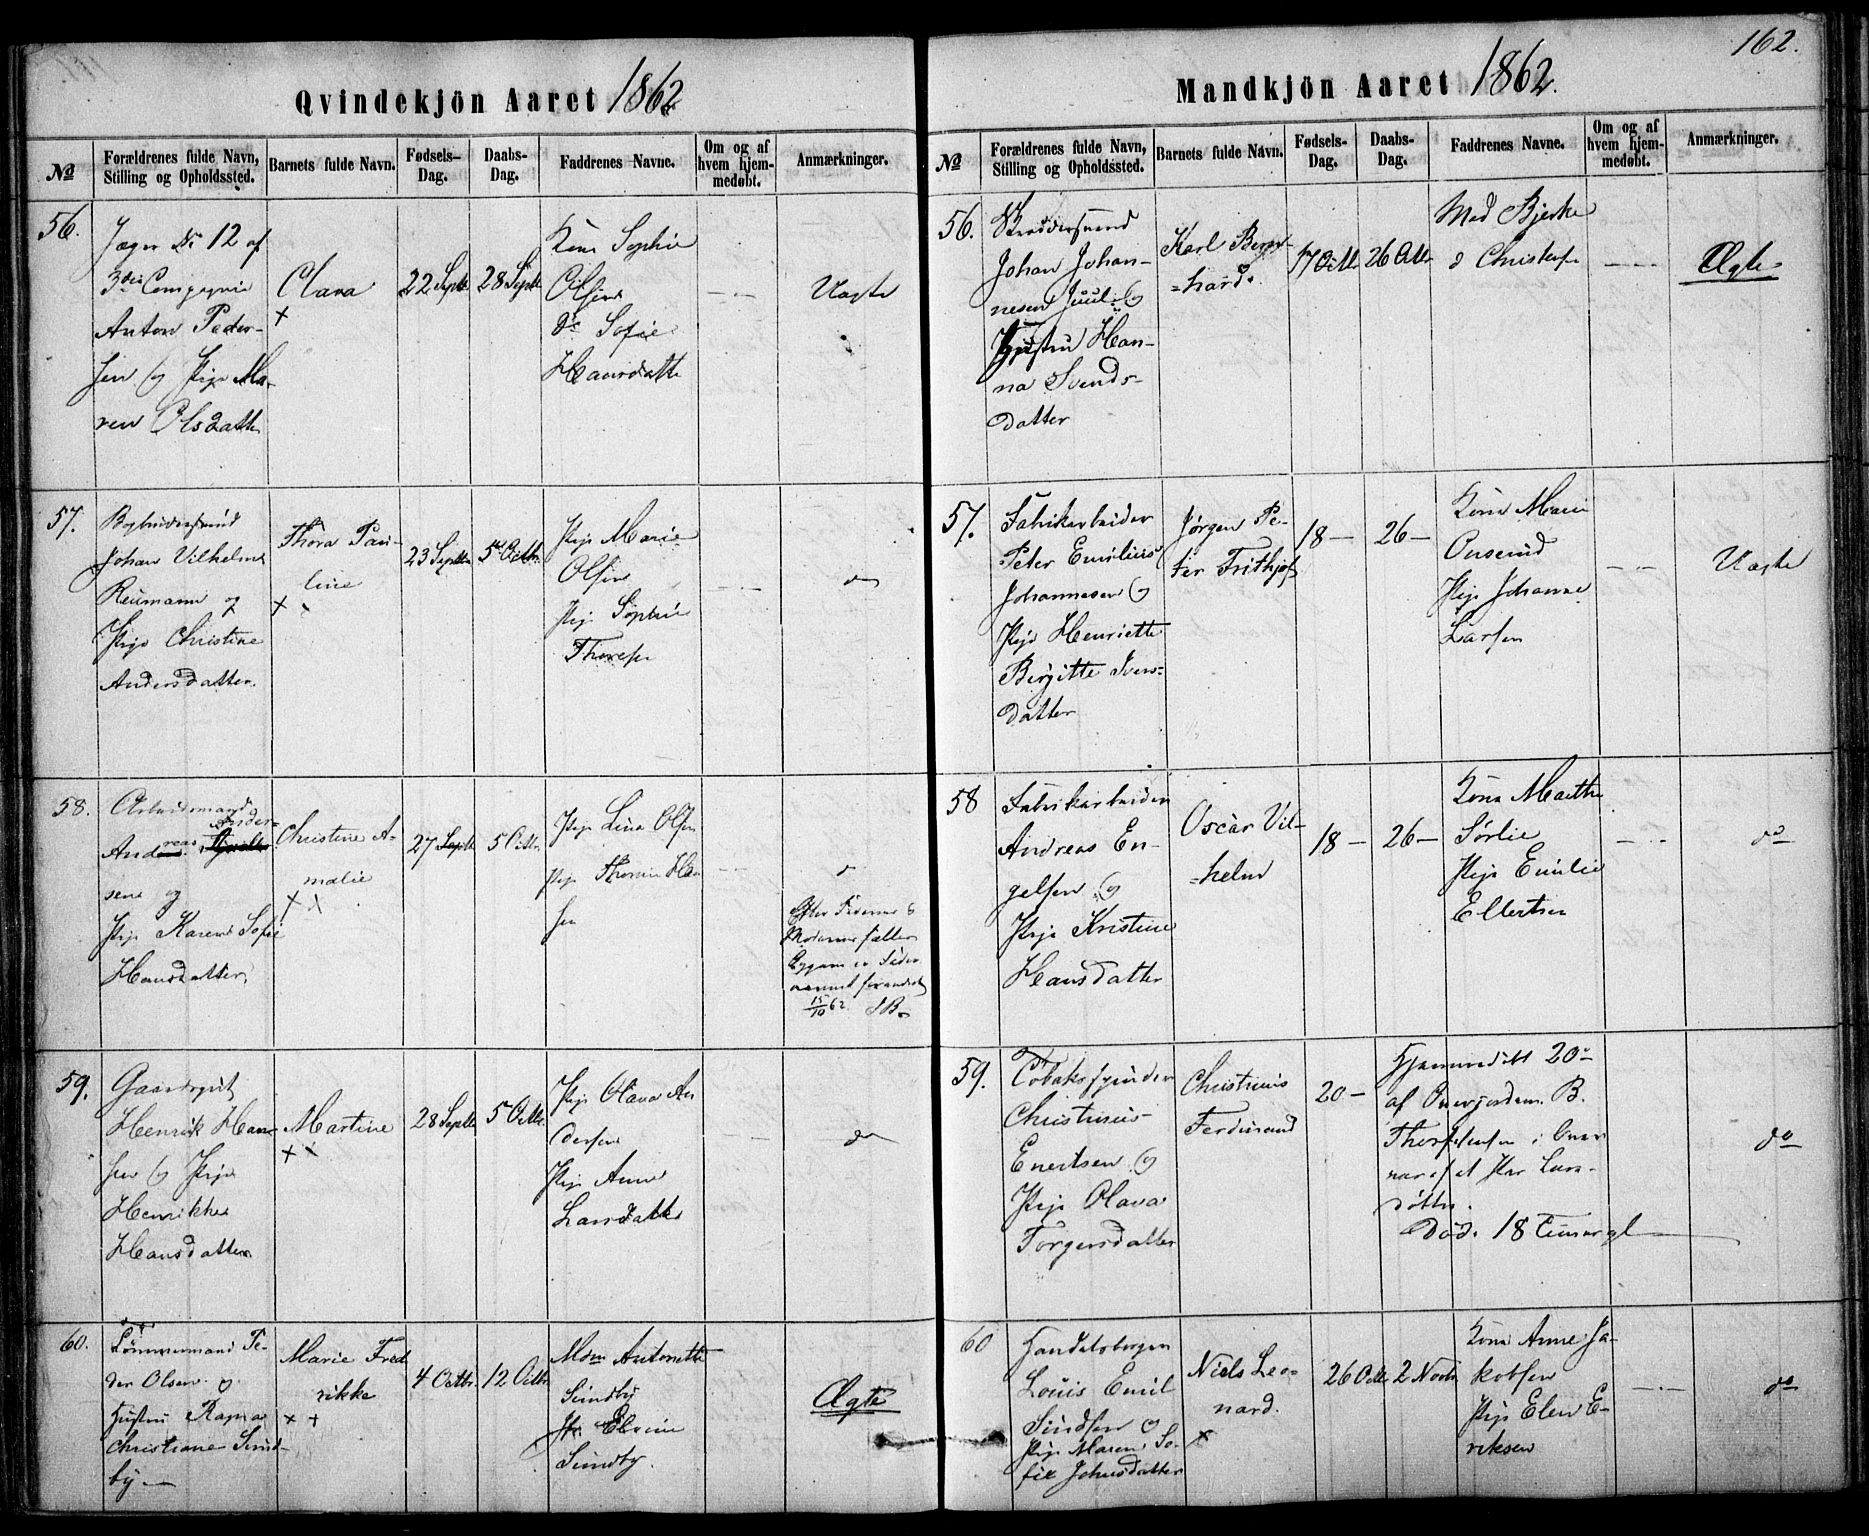 162.
Qvindekjön Aaret 1862
No
Forældrenes fulde Navn, Stilling og Opholdssted.
Barnets fulde Navn.
Fødsels-Dag.
Daabs-Dag.
Faddrenes Navne.
Om og af hvem hjemmedøbt.
Anmærkninger.
56.
Jæger No 12 af
3die Compagnie
Anton Peder-
sen og Pige Ma-
ren Olsdatter
Clara
+
22 Septbr
28 Septbr
Kone Sophie
Olsen
do Sofie
Hansdatter
Uægte
57.
Johan Vilhelm
Reimann og
Pige Christine
Andersdatter.
Thora Pau-
line
+
23 Septbr
5 Octbr.
Pige Marie
Olsen
Pige Sophie
Thoresen
do
58.
Arbeidsmand
Andreas Ander-
sen og
Pige Karen Sofie
Hansdatter.
Christine A-
malie
27 Septbr
5 Octbr.
Pige Lina Olsen
Pige Thomine Han
sen
Efter Faderens &
Moderens fælles
Opgave er Fader-
navnet forandret
15/10 62.
59.
Gaardsgut
Henrik Han-
sen og Pige
Henrikke
Hansdatter
Martine
28 Septbr
5 Octbr.
Pige Olava An
dersen
Pige Anne
Larsdatter
do
60.
Tømmermand Pe-
der Olsen og
Hustru Ragna
Christiane Sund-
by
Marie Fred
rikke
+ +
4 Octbr.
12 Octbr.
Mdm Antonette
Sundby
Elvine
Sundby.
Ægte
Mandkjön Aaret 1862.
No
Forældrenes fulde Navn, Stilling og Opholdssted.
Barnets fulde Navn.
Fødsels-Dag.
Daabs-Dag.
Faddrenes Navne.
Om og af hvem hjemmedøbt.
Anmærkninger.
56.
Skræddersvend
Johan Johan-
nesen Juul og
Hustru Han-
na Svends-
datter
Karl Bern-
=hard.
17 Octbr
26 Octbr
Mad Bjerke
Ægte
57.
Fabrikarbeider
Peter Emilius
Johannesen og
Pige Henriette
Birgitte Ivers-
datter
Jørgen Pe-
ter Frithjof
18 —
26 —
Kone Marie
Onserud
Pige Johanne
Larsen
Uægte
58
Fabrikarbeider
Andreas En-
gelsen og
Pige Kristine
Hansdatter
Oscar Vil-
=helm
18 —
26 —
Kone Marthe
Sørlie
Pige Emilie
Ellertsen
do
59.
Tobaksspinder
Christinius
Enertsen og
Pige Olava
Torgersdatter
Christinius
Ferdinand
20 —
Hjemmedøbt 20de
af B.
Død. 18
do
60
Handelsborger
Louis Emil
og
Pige Maren So-
fie Johnsdatter
Niels Leo-
nard.
26 Octbr
2 Novbr
Kone Anne Ja-
kobsen
Pige Elen E-
riksen
do